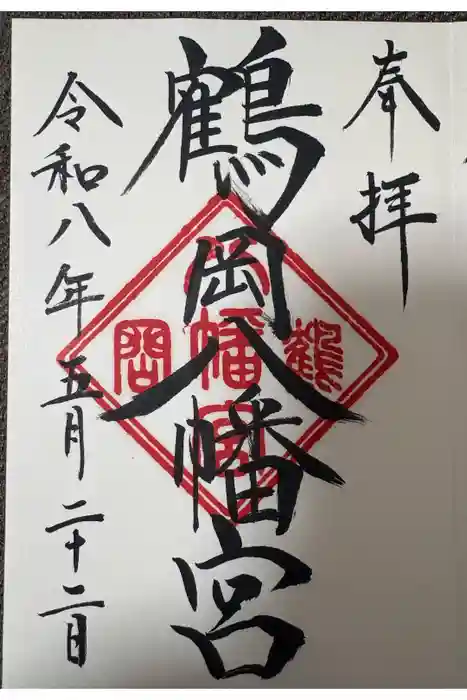 奉拝
鶴岡八幡宮
鶴岡八幡宮
令和八年五月二十二日